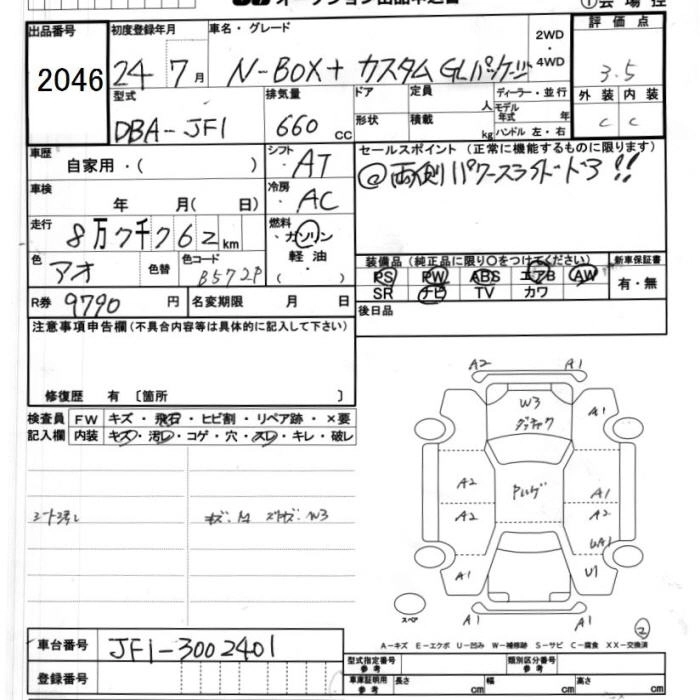 オークション出品申込書
出品番号 2046
初度登録年月 24 7月
車名・グレード N-BOX+ カスタム GLパッケージ
2WD・4WD
評価点 3.5
外装 内装
C C
型式 DBA-JF1
排気量 660 cc
ドア 形状
定員 人
積載 kg
ディーラー・並行
モデル年式 年
ハンドル 左・右
車歴 自家用・( )
シフト ・AT
車検 年 月( 日)
冷房 ・AC
走行 8万7千762km
燃料 ・ガソリン 軽油 ・( )
色 アオ 色替
色コード B572P
R券 9790 円
名変期限 月 日
セールスポイント (正常に機能するものに限ります)
@両側パワースライドドア!!
装備品 (純正品に限り○をつけてください)
PS PW ABS エアB AW
SR ナビ TV カワ
新車保証書 有・無
後日品
注意事項申告欄(不具合内容等は具体的に記入して下さい)
修復歴 有 〔箇所 〕
検査員記入欄
FW キズ・飛石・ヒビ割・リペア跡・×要
内装 キズ・汚レ・コゲ・穴・スレ・キレ・破レ
W3
A2 A1
A1
A2 A1
A2 A2
A1 U1
A1 A1
スペア
2
A-キズ E-エクボ U-凹み W-補修跡 S-サビ C-腐食 XX-交換済
車台番号 JF1-3002401
登録番号
型式指定番号 参考
類別区分番号 参考
車庫証明用 参考
長さ cm 幅 cm 高さ cm